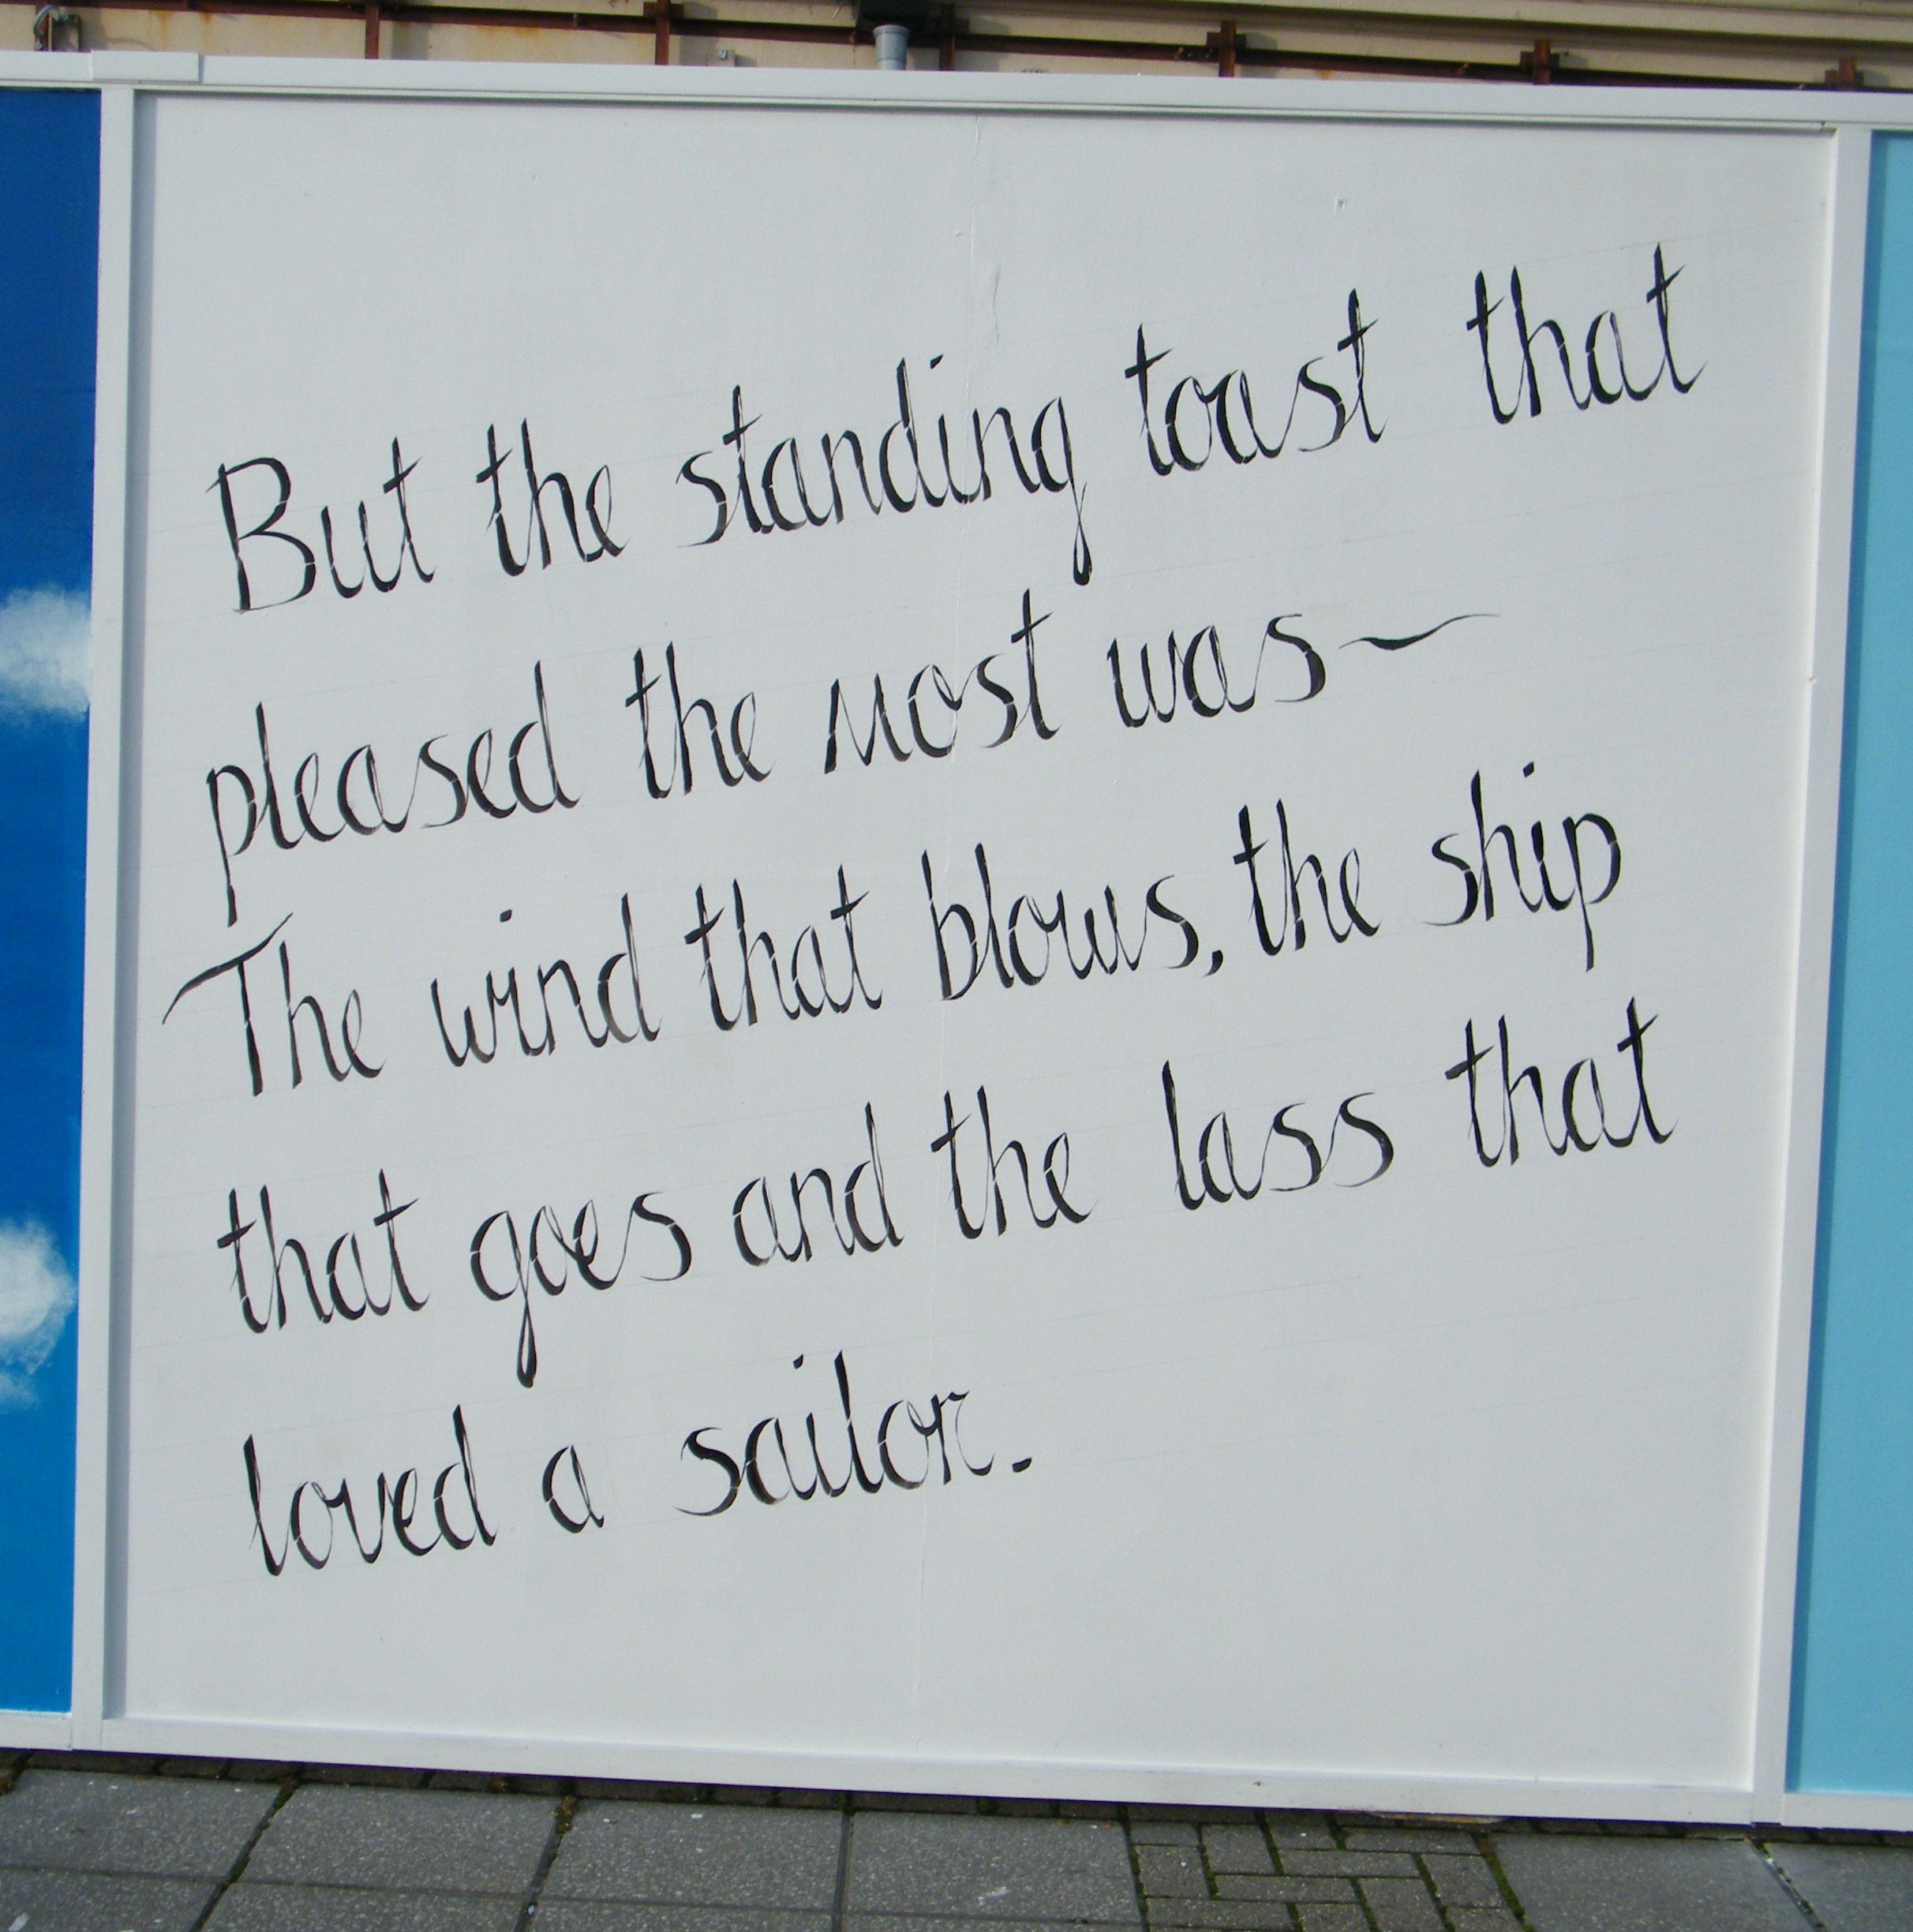 But the standing toast that
pleased the most was~
The wind that blows, the ship
that goes and the lass that
loved a sailor.